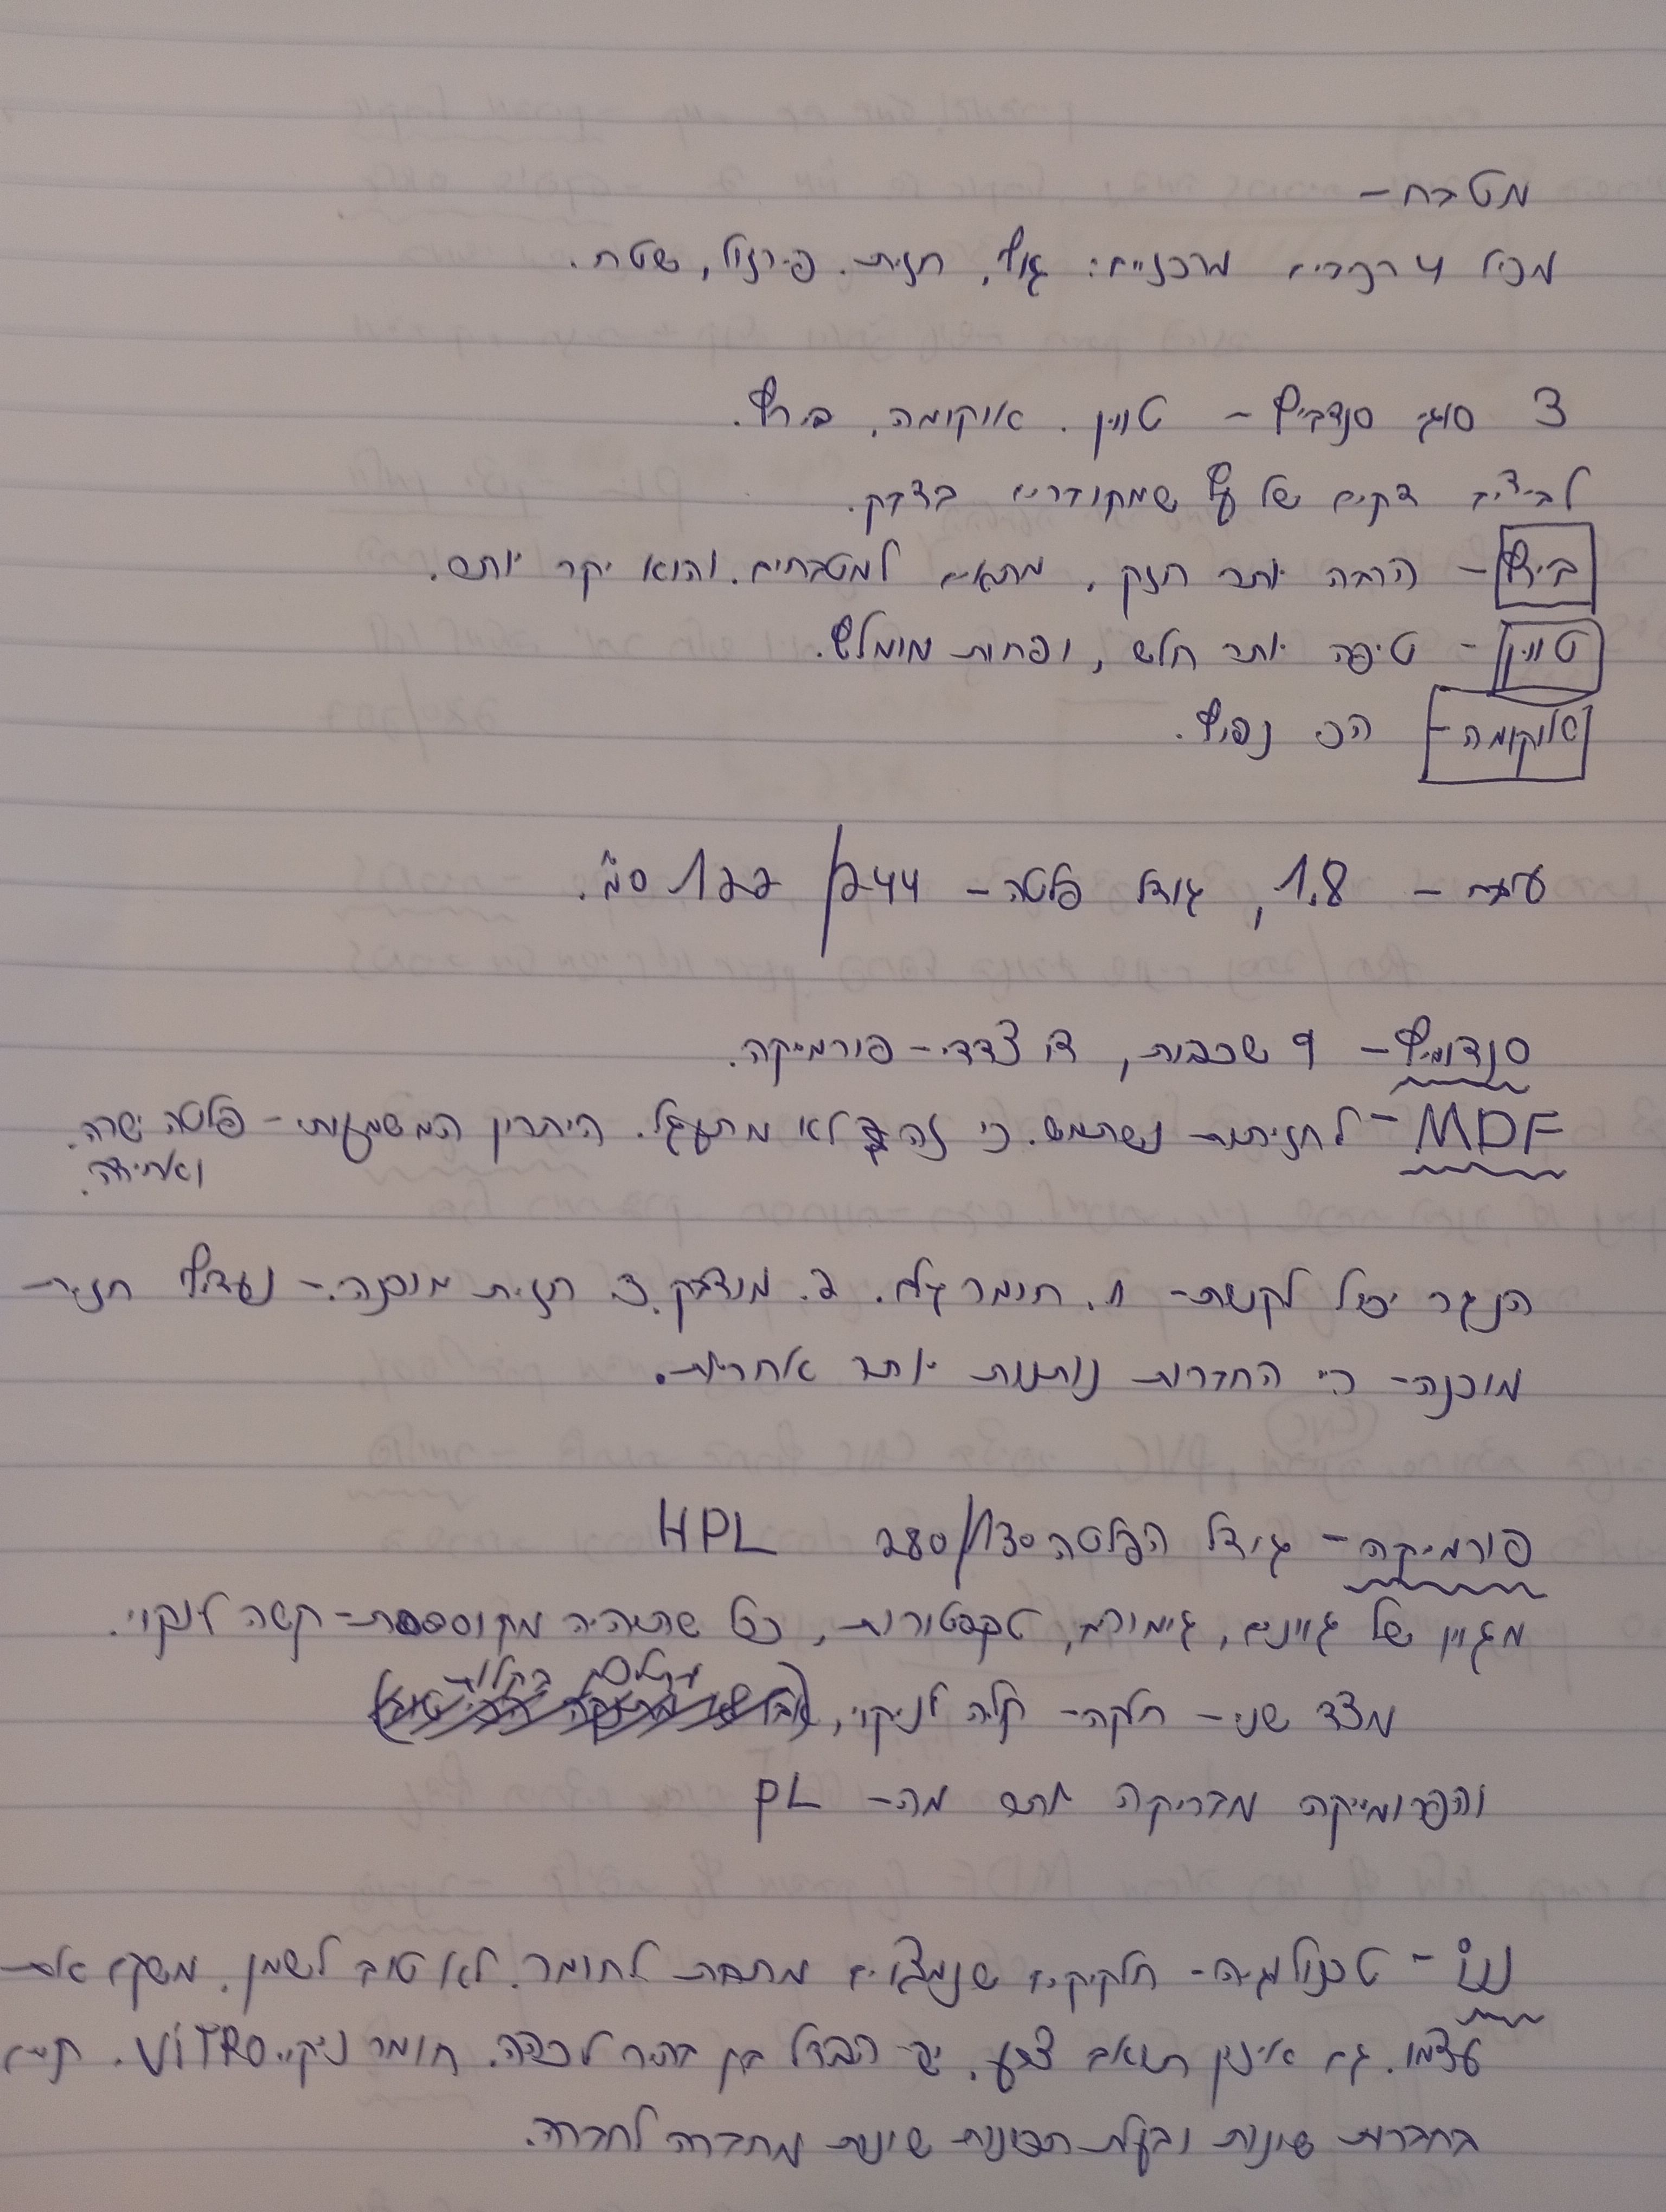 מטבח -
מכיל 4 רכיבים מרכזיים: גוף, חזית. פירזול, שטח.
3 סוגי סנדביץ - טווין. אוקומה, בירץ.
לבידים דקים של עץ שמקודרים בדבק.
בירץ - הרבה יותר חזק, מתאים למטבחים. והוא יקר יותר.
טווין - טיפה יותר חלש, ופחות מומלץ.
אוקומה - הכי נפיץ.
עובי - 1.8, גודל פלטה - 244/122 ס"מ.
סנדוויץ - 9 שכבות, דו צדדי - פורמייקה.
MDF - לחזיתות נשתמש. כי זה לא מתעגל. היתרון המשמעותי - פלטה ישרה.
ואחידה.
הנגר יכול לקנות - 1. חומר גלם. 2. מודבק. 3. חזית מוכנה. - נעדיף חזית
מוכנה - כי החברות נותנות יותר אחריות.
פורמייקה - גודל הפלטה 280/130 HPL
מגוון של גוונים, גימורים, טקסטורות, ככל שתהיה מחוספסת - קשה לנקוי.
מצד שני - חלקה - קלה לניקוי,
והפרומייקה מבריקה יותר מה - PL
ננו - טכנולוגיה - חלקיקים שנמצאים מתחת לחומר. לא טוב לשמן. משקם את
עצמו. גם אינן תואב צבע. יש הבדל בין בהיר לכהה. חומר ניקוי VITRO. קיים
בחברות שונות ובעלת תכונות שונות מחברה לחברה.